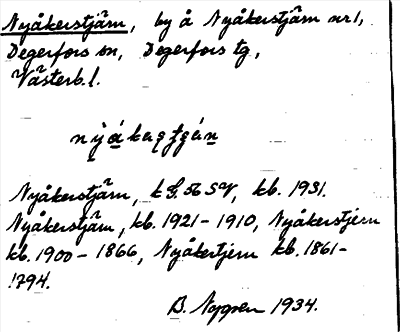 Nyåkerstjärn, by å Nyåkerstjärn nr 1,
Degerfors sn, Degerfors tg,
Västerb. l.
Nyåkerstjärn, kb. 1931.
Nyåkerstjärn, kb. 1921-1910, Nyåkerstjern
kb. 1900-1866, Nyåkertjern kb. 1861-
1794.
B. Nygren 1934.